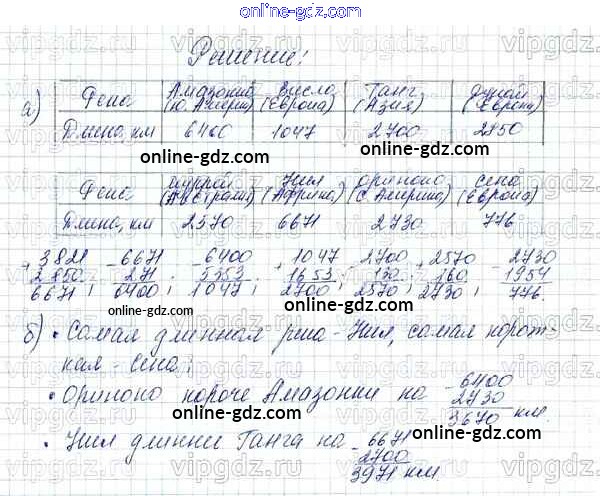 online-gdz.com
Решение!
а)
Река Амазонка (Ю. Америка) Висла (Европа) Ганг (Азия) Дунай (Европа)
Длина, км 6400 1047 2700 2850
online-gdz.com
online-gdz.com
Река Муррей (Австралия) Нил (Африка) Ориноко (С. Америка) Сена (Европа)
Длина, км 2570 6671 2730 776
+3821 -6671 -6400 +1047 -2700 +2570 -2730
2850 271 5353 1653 130 160 1954
6671; 6400; 1047; 2700; 2570; 2730; 776.
online-gdz.com
б) • Самая длинная река - Нил, самая корот-
кая - Сена;
online-gdz.com
• Ориноко короче Амазонки на -6400
2730
3670 км.
online-gdz.com
• Нил длиннее Ганга на -6671
2700
3971 км.
online-gdz.com